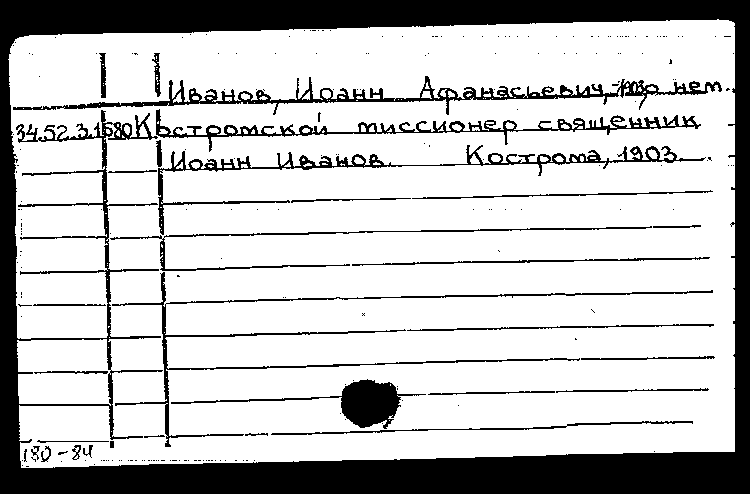 Иванов, Иоанн Афанасьевич, о нем.
34.52.3.1580 Костромской миссионер священник
Иоанн Иванов. Кострома, 1903.
180-84